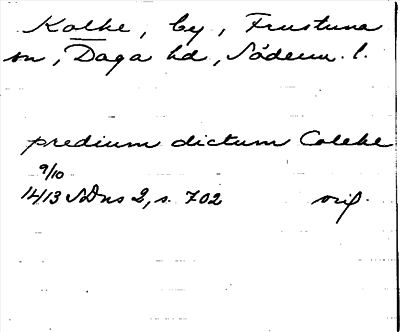 Kolke, by, Frustuna
sn, Daga hd, Söderm. l.
predium dictum Coleke
9/10
1413 SDns 2, s. 702 orig.